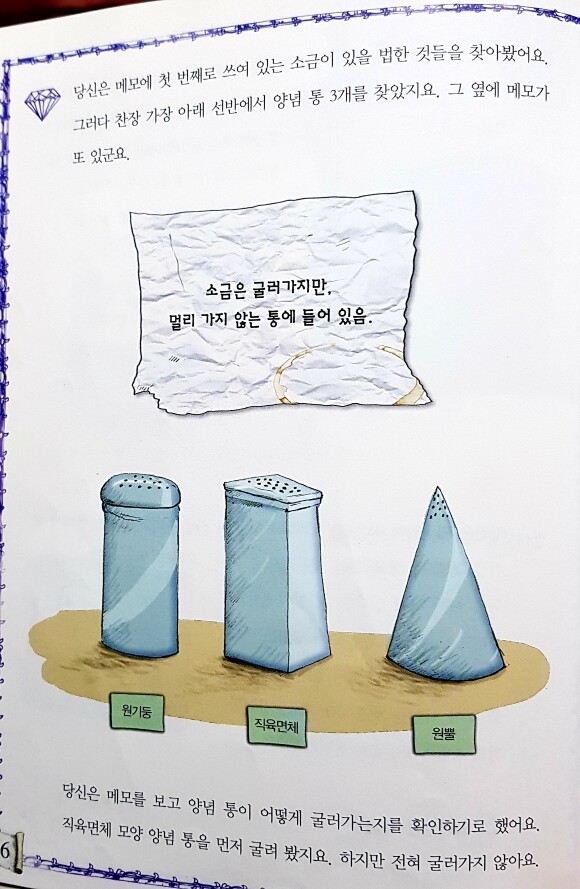 당신은 메모에 첫 번째로 쓰여 있는 소금이 있을 법한 것들을 찾아봤어요.
그러다 찬장 가장 아래 선반에서 양념 통 3개를 찾았지요. 그 옆에 메모가
또 있군요.
소금은 굴러가지만,
멀리 가지 않는 통에 들어 있음.
원기둥
직육면체
원뿔
당신은 메모를 보고 양념 통이 어떻게 굴러가는지를 확인하기로 했어요.
직육면체 모양 양념 통을 먼저 굴려 봤지요. 하지만 전혀 굴러가지 않아요.
6